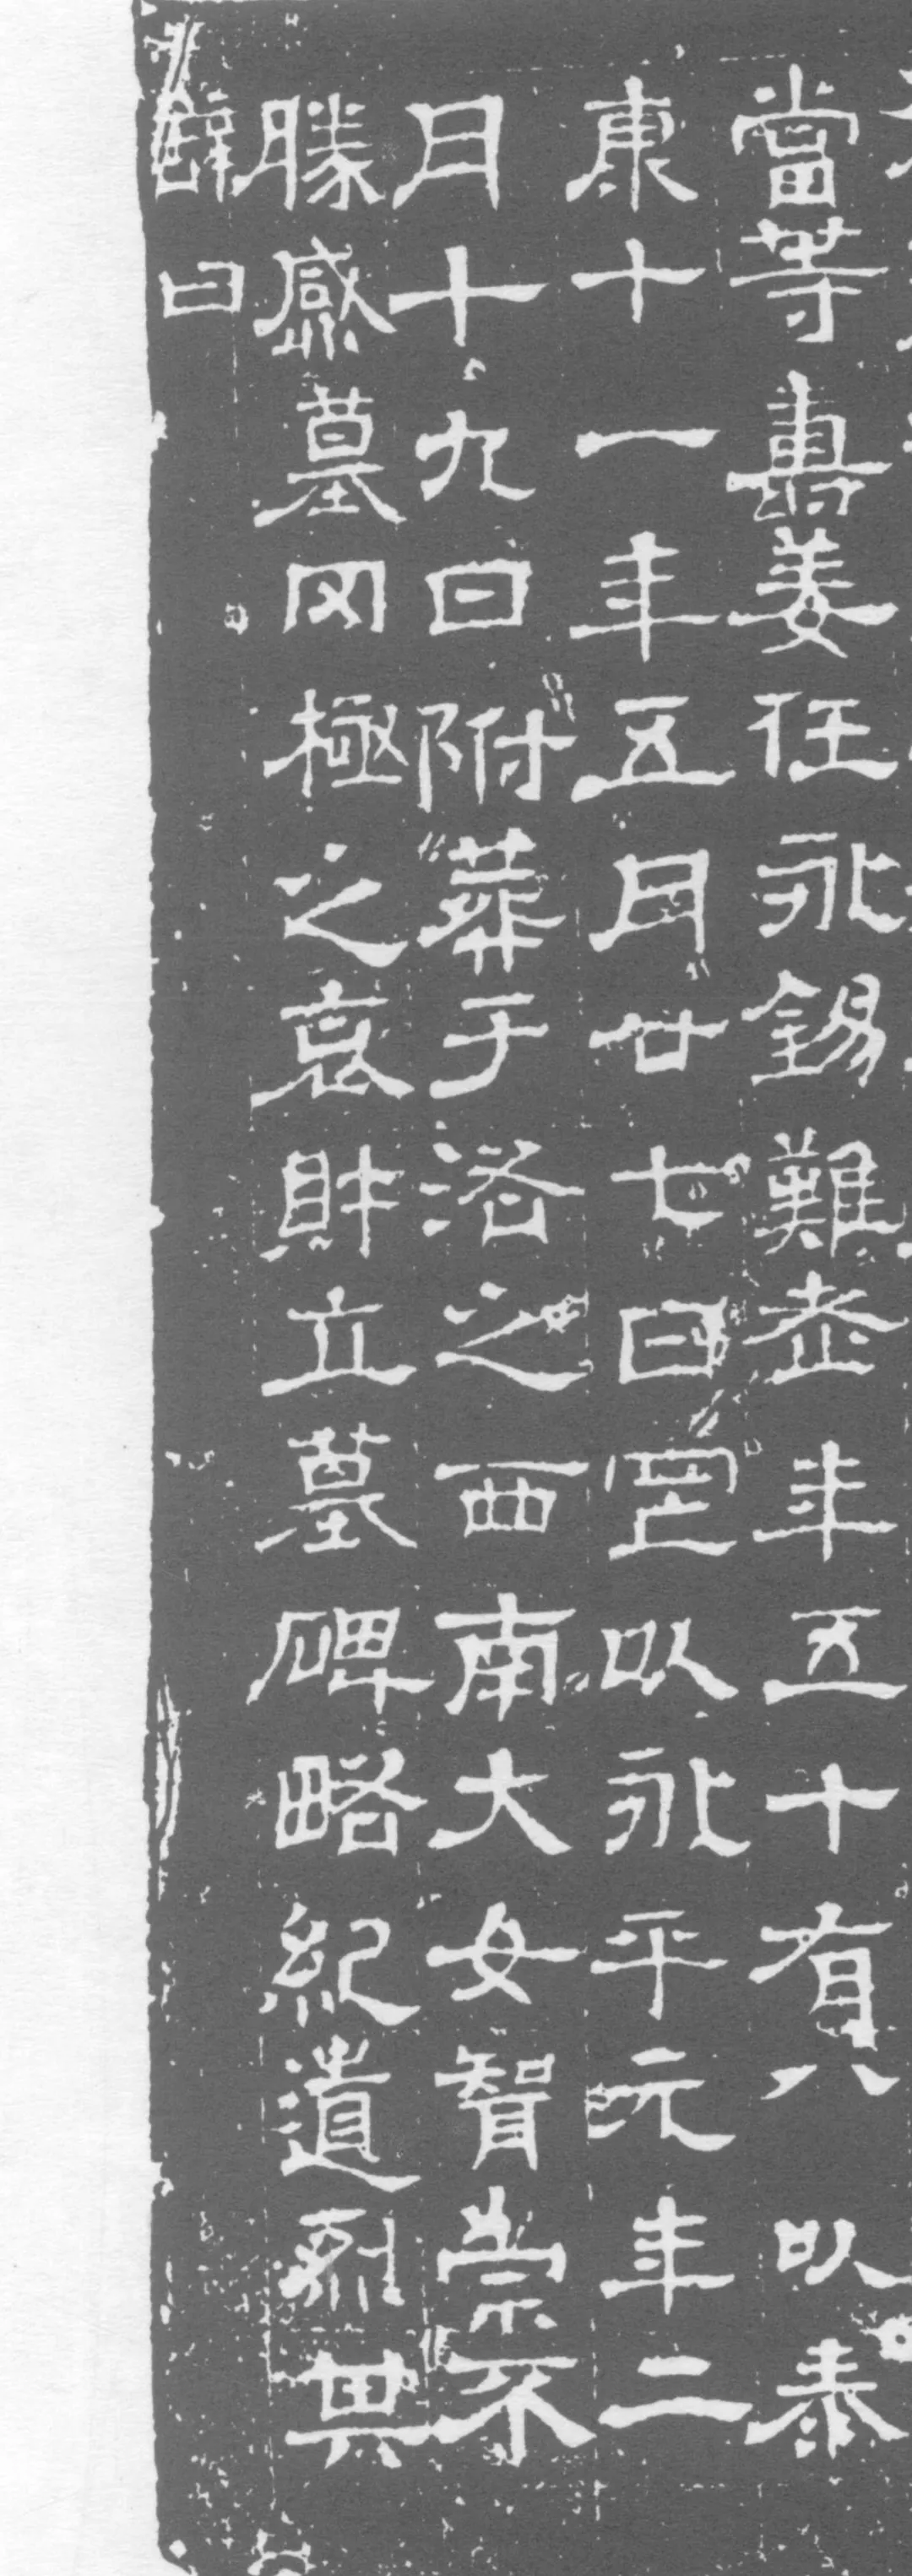 當等壽姜任永錫難老年五十有八以泰
康十一年五月廿七日罡以永平元年二
月十九日附葬于洛之西南大女智崇不
勝感墓罔極之哀財立墓碑略紀遺烈其
辭曰